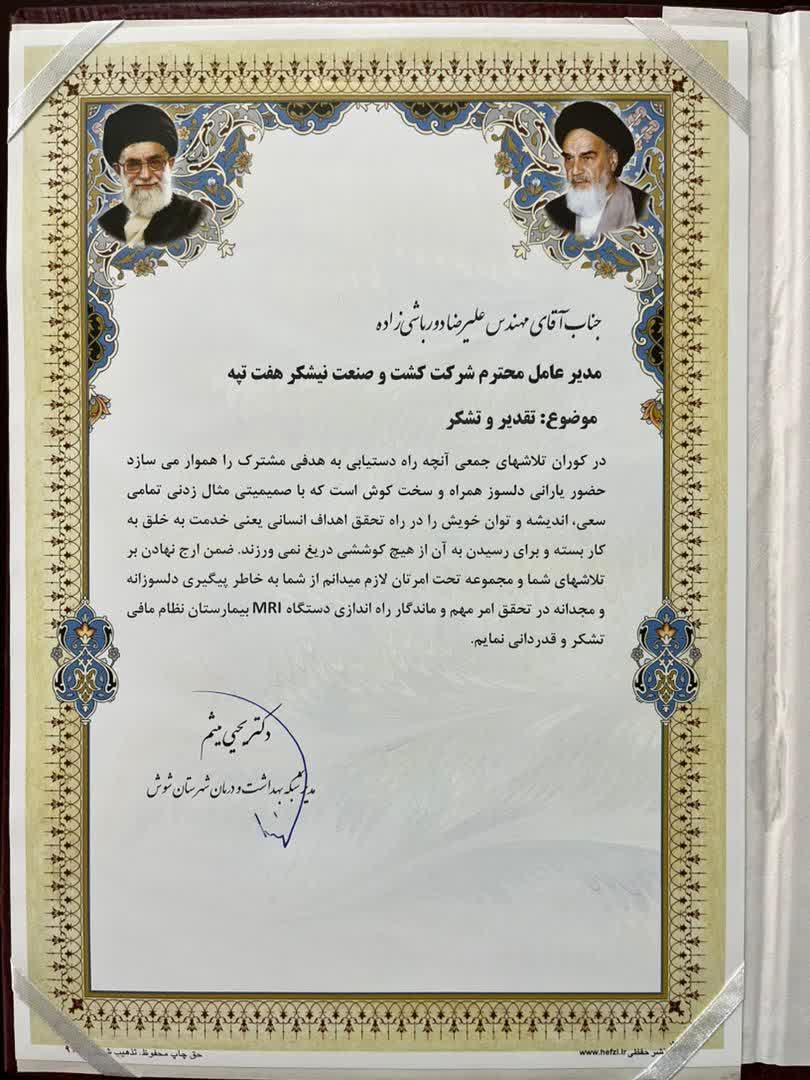 جناب آقای مهندس علیرضا دورباشی زاده
مدیر عامل محترم شرکت کشت و صنعت نیشکر هفت تپه
موضوع: تقدیر و تشکر
در کوران تلاشهای جمعی آنچه راه دستیابی به هدفی مشترک را هموار می سازد
حضور یارانی دلسوز همراه و سخت کوش است که با صمیمیتی مثال زدنی تمامی
سعی، اندیشه و توان خویش را در راه تحقق اهداف انسانی یعنی خدمت به خلق به
کار بسته و برای رسیدن به آن از هیچ کوششی دریغ نمی ورزند. ضمن ارج نهادن بر
تلاشهای شما و مجموعه تحت امرتان لازم میدانم از شما به خاطر پیگیری دلسوزانه
و مجدانه در تحقق امر مهم و ماندگار راه اندازی دستگاه MRI بیمارستان نظام مافی
تشکر و قدردانی نمایم.
دکتر یحیی میثم
مدیر شبکه بهداشت و درمان شهرستان شوش
نشر حفظی www.hefzi.ir
حق چاپ محفوظ. تذهیب